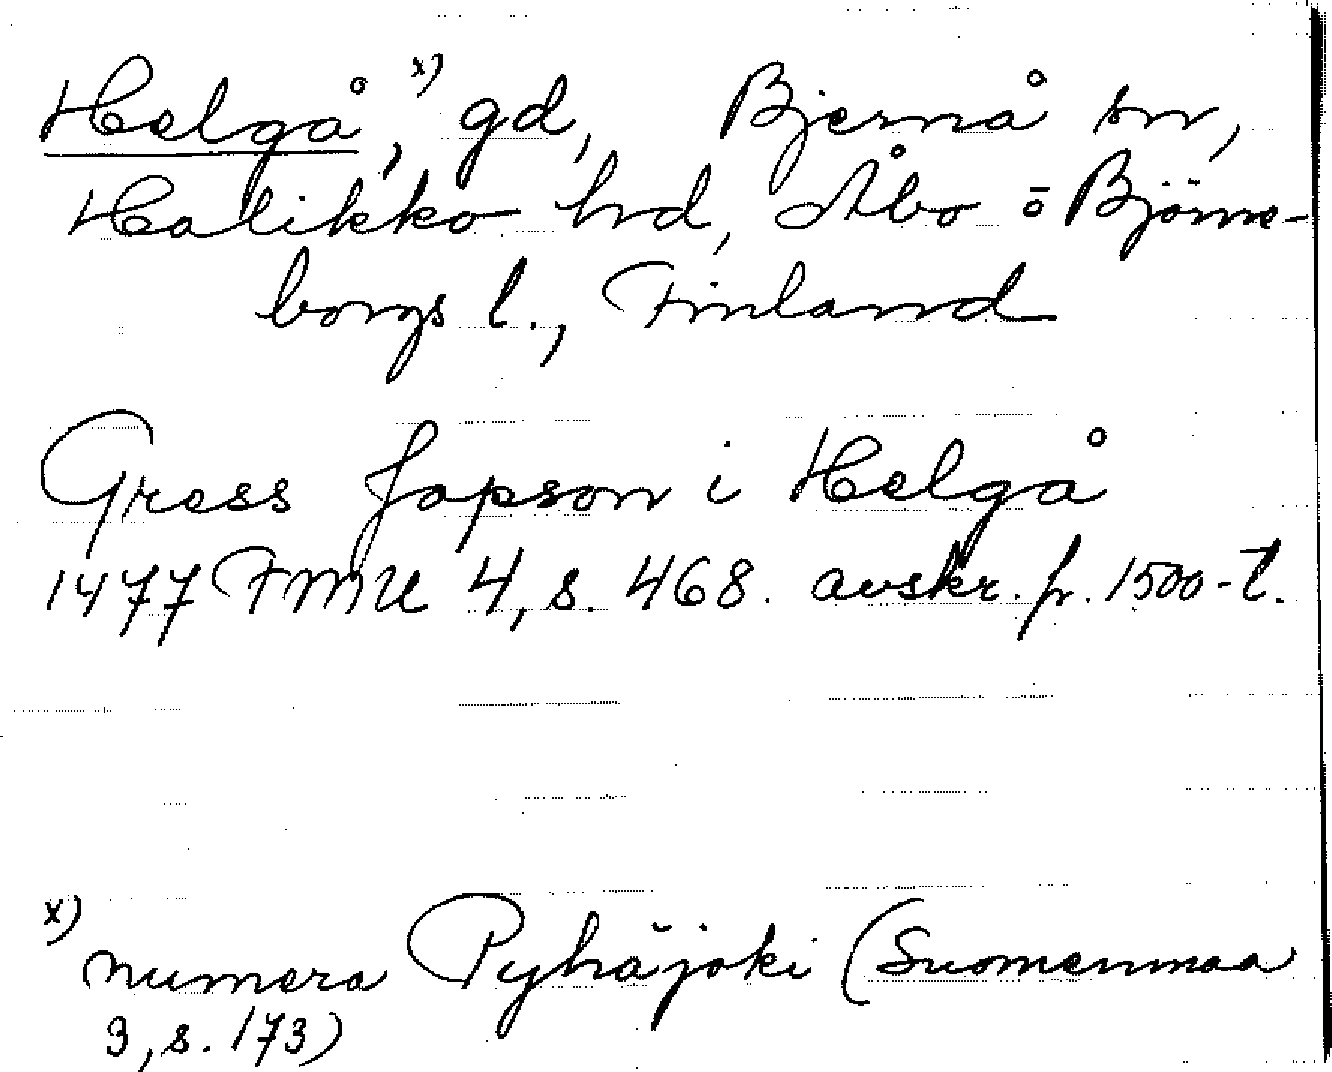 Helgå x), gd, Bjernå sn,
Halikko hd, Åbo o Björne-
borgs l., Finland
Gress Japson i Helgå
1477 FMU 4, s. 468. avskr. fr. 1500-t.
x) numera Pyhäjoki (Suomenmaa
3, s. 173)